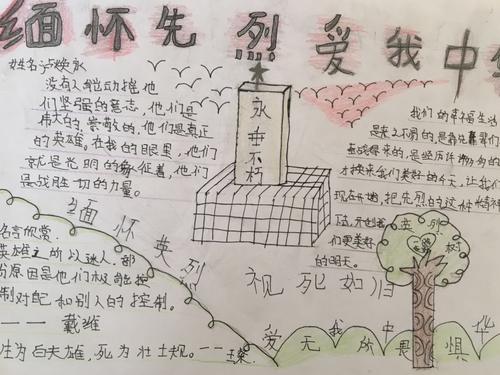 缅怀先烈 爱我中
姓名
没有人能动摧他
们坚强的意志,他们是
伟大的,崇敬的,他们是真正
的英雄。在我的眼里,他们
就是光明的象征着,他们
是战胜一切的力量。
永垂不朽
我们的幸福生活
是来之不易的,是
才换来我们美好的今天,让我
现在开始,把先烈的这种精神
们更美好
的明天。
英烈树
缅怀英烈
名言欣赏
英雄之所以迷人,部
分原因是他们极能控
制对配和别人的控制。
——戴维
生为百夫雄,死为壮士规。——王粲
视死如归
爱我中华
无所畏惧